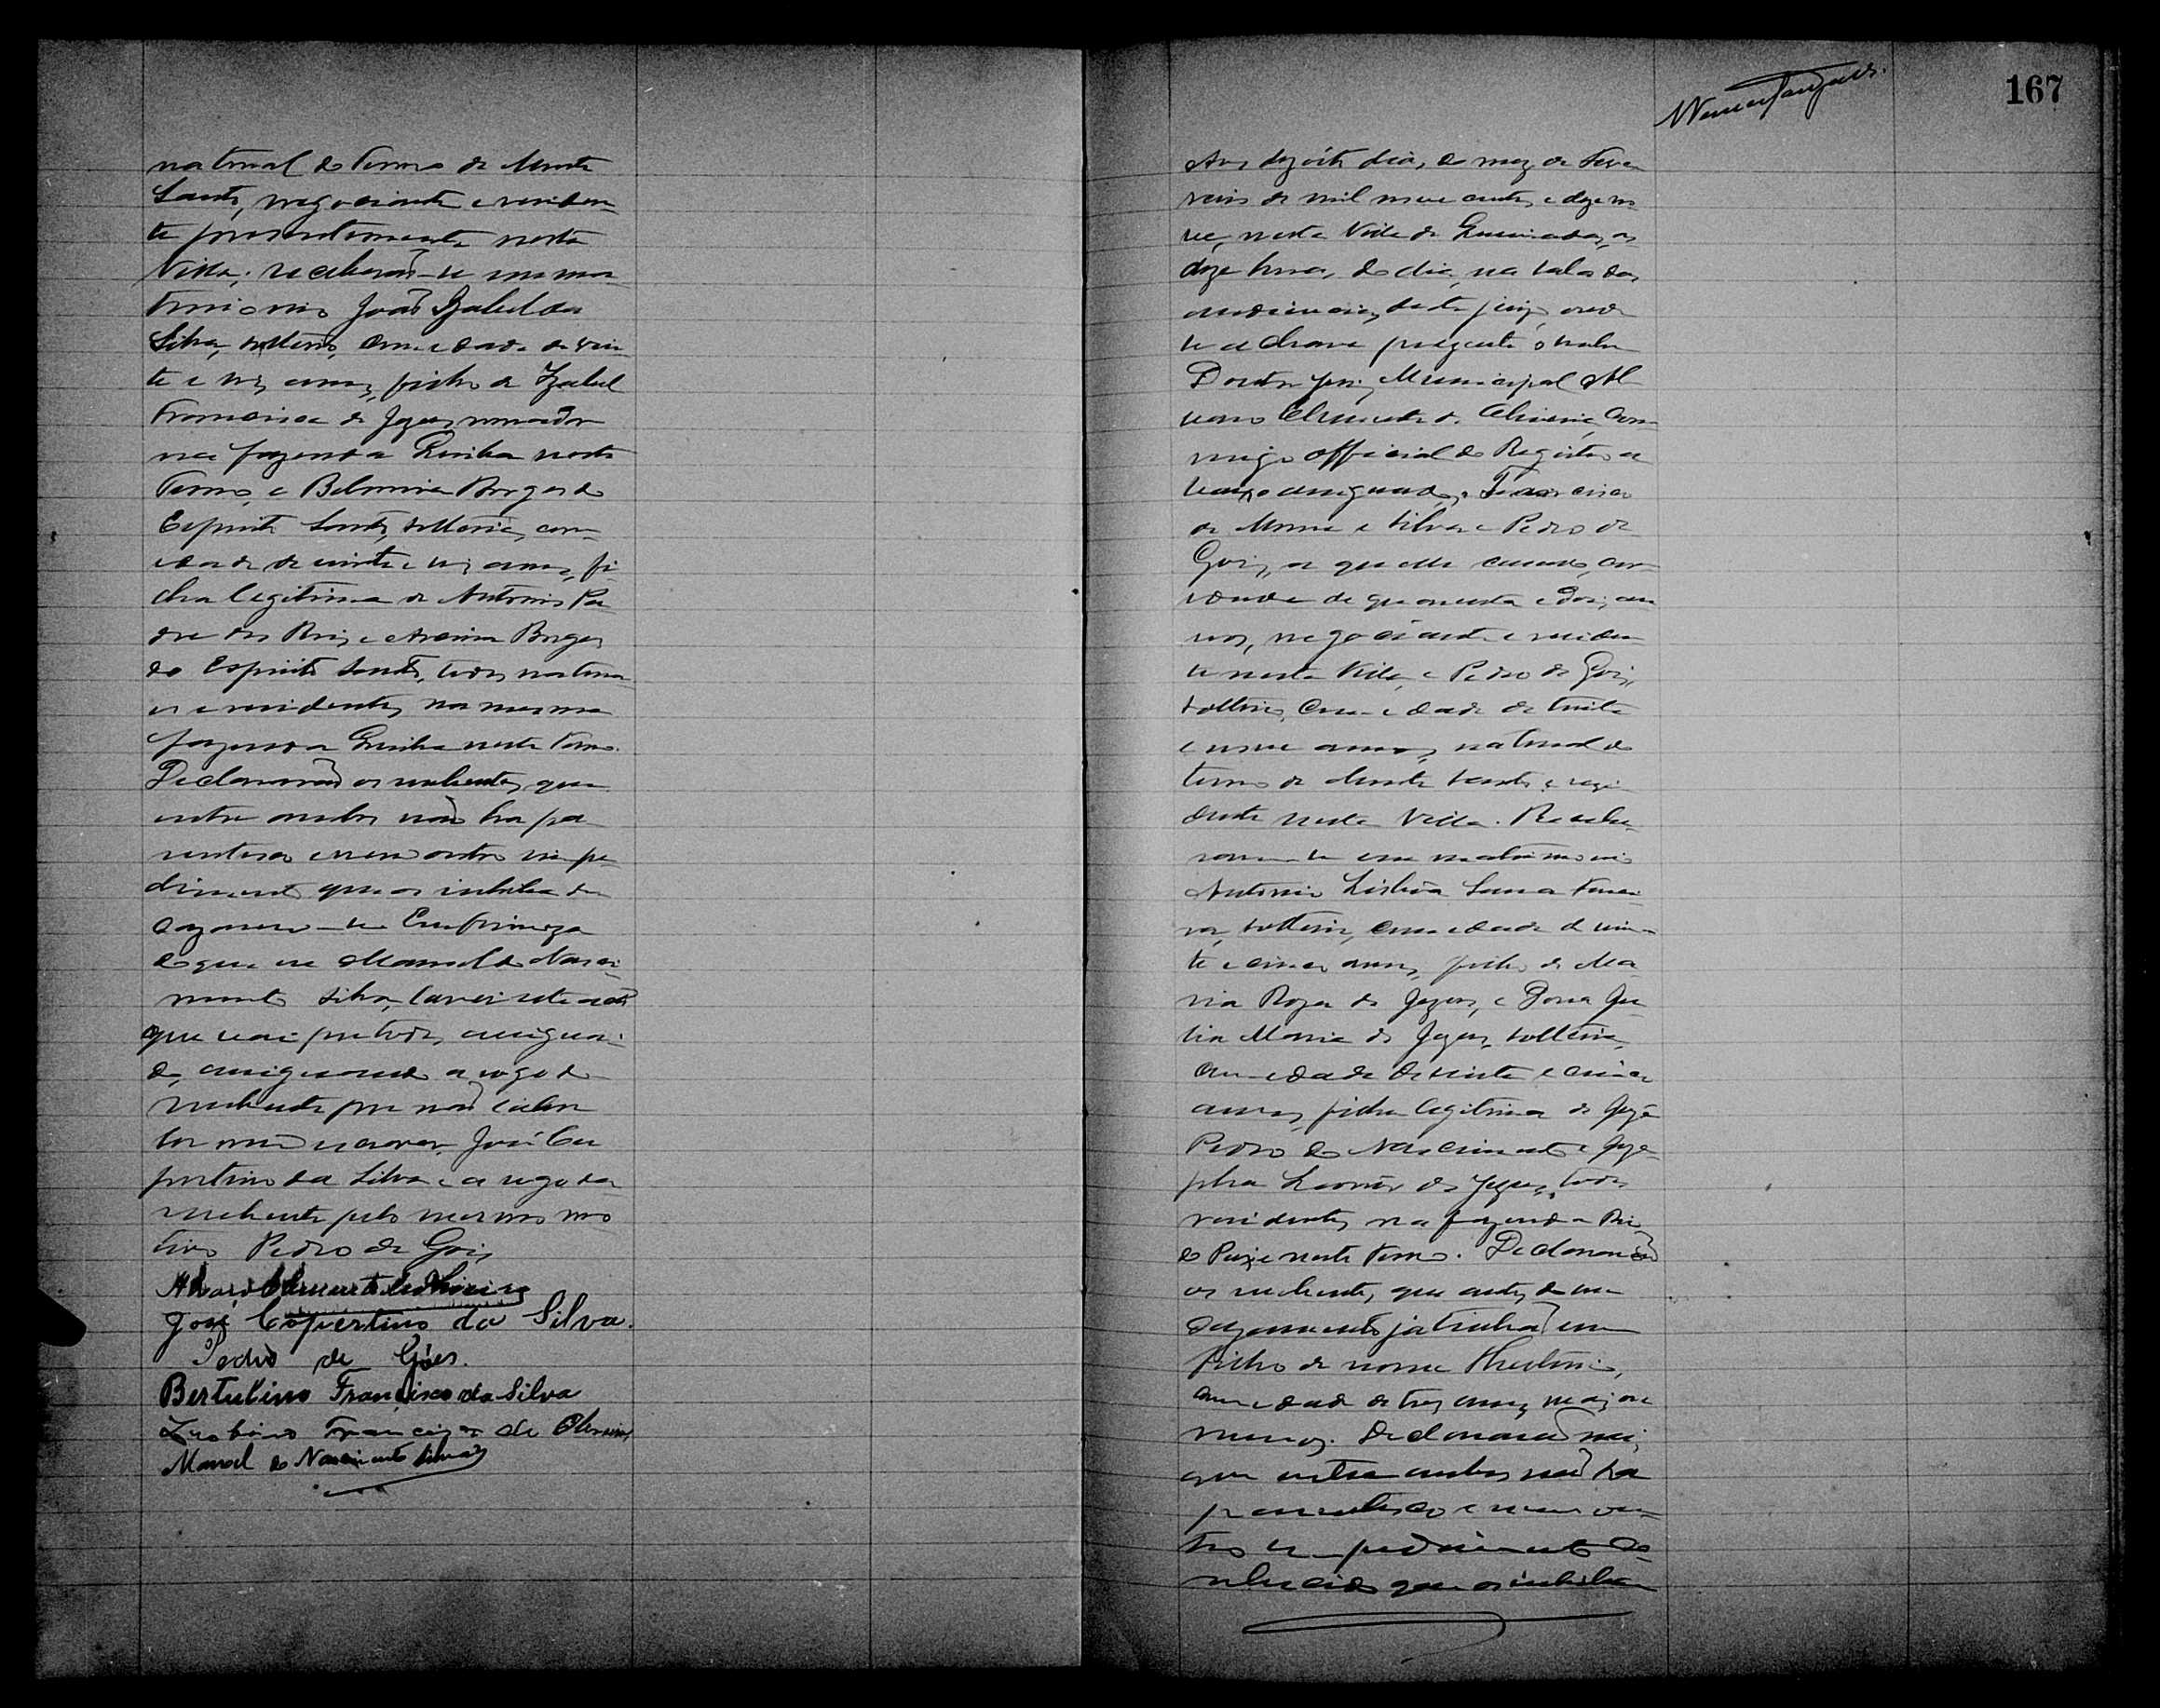 natural do Termo de Monte
Santo, negociante e residen-
te presentemente nesta
Villa; receberaõ-se em ma-
trimonio João Izabel da
Silva, solteiro, com edade de vin-
te e tres annos, filho de Izabel
Francisca de Jezus, morador
na fazenda Lusiba neste
Termo, e Belmira Borges do
Espirito Santo, solteira, com
edade de vinte e tres annos, fi-
lha legitima de Antonio
dos Reis e Borges
do Espirito Santo, todos natura-
es e residentes na mesma
fazenda neste Termo.
Declararaõ os nubentes que
entre ambos naõ ha pa-
rentesco e nem outro impe-
dimento que os inhiba de
cazarem-se. Em firmeza
do que eu Manoel do Nasci-
mento Silva, lavrei este acto
que vai por todos assigna-
do, assignando a rogo do
nubente por naõ saber
ler nem escrever, José Cu-
pertino da Silva e a rogo da
nubente pelo mesmo mo-
tivo Pedro de Góis
Alvaro Clemente de Oliveira
José Copertino da Silva.
Pedro de Góes.
Bertulino Francisco da Silva
Francisco de Oliveira
Manoel do Nascimento Silva
167
Aos dezoito dias do mez de Feve-
reiro de mil nove centos e dezeno-
ve, nesta Villa de Queimadas, as
doze horas do dia, na sala das
audiencias deste juizo, onde
se achava prezente o
Doutor Juiz Municipal Al-
varo Clemente de Oliveira, com-
migo official do Registro a
baixo assignado, Francisco
de Moura e Silva e Pedro de
Gois, aquelle casado, com
edade de quarenta e dois an-
nos, negociante e residen-
te nesta Villa, e Pedro de Gois,
solteiro, com edade de trinta
e nove annos, natural do
termo de Monte Santo e rezi-
dente nesta Villa. Recebe-
ram-se em matrimonio
Antonio Lisbôa Ferrei-
ra, solteiro, com edade de vin-
te e cinco annos, filho de Ma-
ria Roza de Jezus, e Dona Ju-
lia Maria de Jezus, solteira,
com edade de vinte e cinco
annos, filha legitima de José
Pedro do Nascimento e Joze-
pha Leonor de Jezus, todos
residentes na fazenda Rio
do Peixe neste Termo. Declararaõ
os nubentes, que antes de seu
cazamento já tinhaõ um
filho de nome
com edade de tres annos, mais ou
menos. Declararaõ mais
que entre ambos naõ ha
parentesco e nem ou-
tro impedimento co-
nhecido que os inhiba